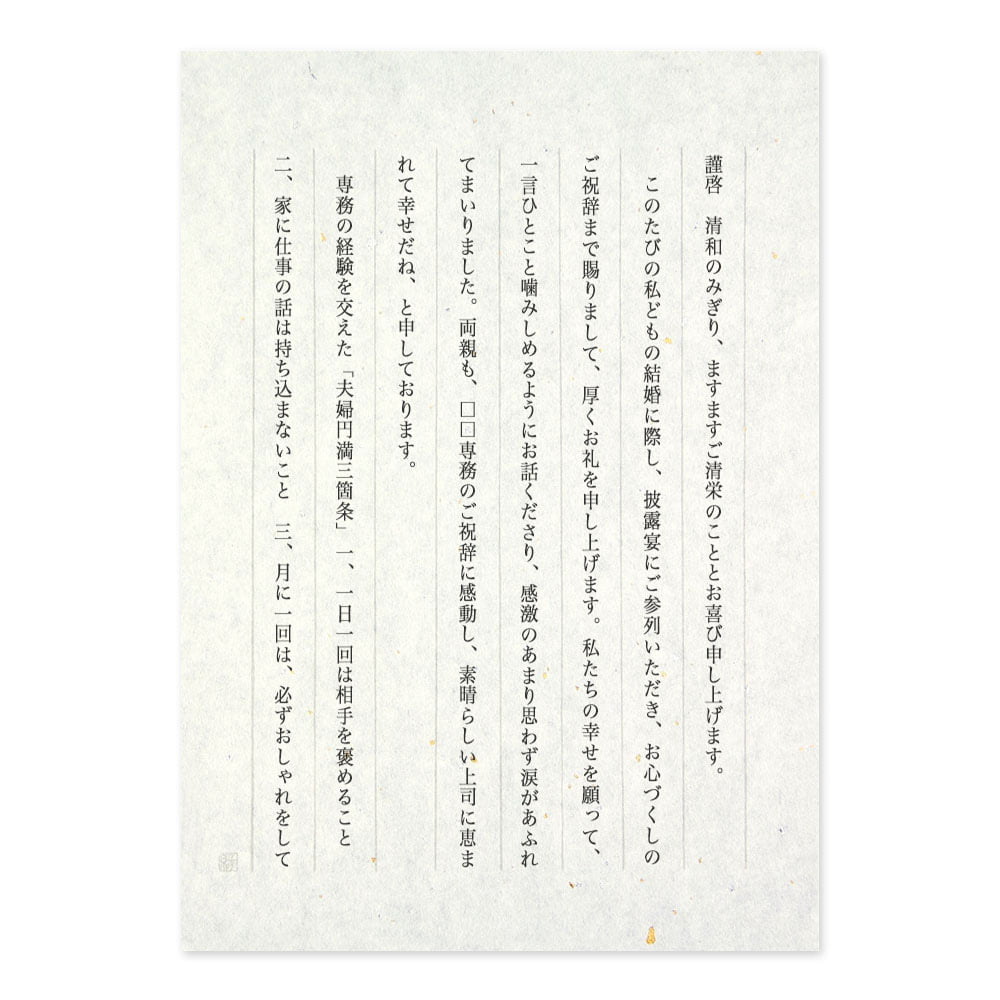 謹啓　清和のみぎり、ますますご清栄のこととお喜び申し上げます。
このたびの私どもの結婚に際し、披露宴にご参列いただき、お心づくしの
ご祝辞まで賜りまして、厚くお礼を申し上げます。私たちの幸せを願って、
一言ひとこと噛みしめるようにお話くださり、感激のあまり思わず涙があふれ
てまいりました。両親も、□□専務のご祝辞に感動し、素晴らしい上司に恵ま
れて幸せだね、と申しております。
専務の経験を交えた「夫婦円満三箇条」一、一日一回は相手を褒めること
二、家に仕事の話は持ち込まないこと　三、月に一回は、必ずおしゃれをして